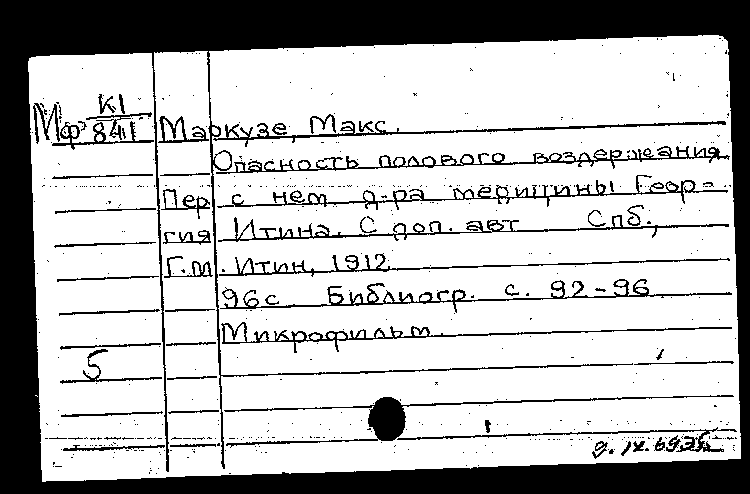 К1
Мф 841 Маркузе, Макс.
Опасность полового воздержания
Пер с нем д-ра медицины Геор-
гия Итина. С доп. авт Спб.,
Г.М. Итин, 1912
96с Библиогр. с. 92-96
Микрофильм.
5
9. IX. 69